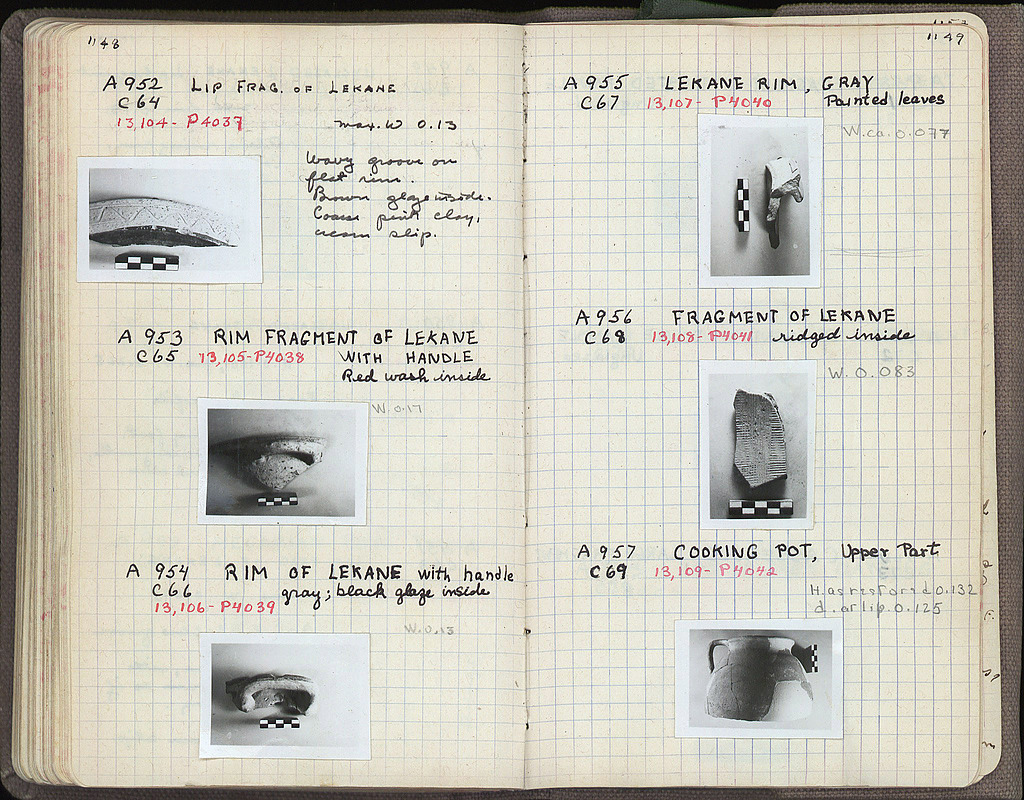 1148
A 952 LIP FRAG. OF LEKANE
C 64
13,104- P4037
max. W 0.13
Wavy groove on
flat rim.
Brown glaze inside.
Coarse pink clay,
cream slip.
A 953 RIM FRAGMENT OF LEKANE
C 65 13,105-P4038 WITH HANDLE
Red wash inside
W. 0.17
A 954 RIM OF LEKANE with handle
C 66 gray; black glaze inside
13,106- P4039
W. 0.13
1149
A 955 LEKANE RIM, GRAY
C 67 13,107- P4040 Painted leaves
W. ca. 0.077
A 956 FRAGMENT OF LEKANE
C 68 13,108- P4041 ridged inside
W. 0.083
A 957 COOKING POT, Upper Part
C 69 13,109- P4042
H. as restored 0.132
d. at lip. 0.125